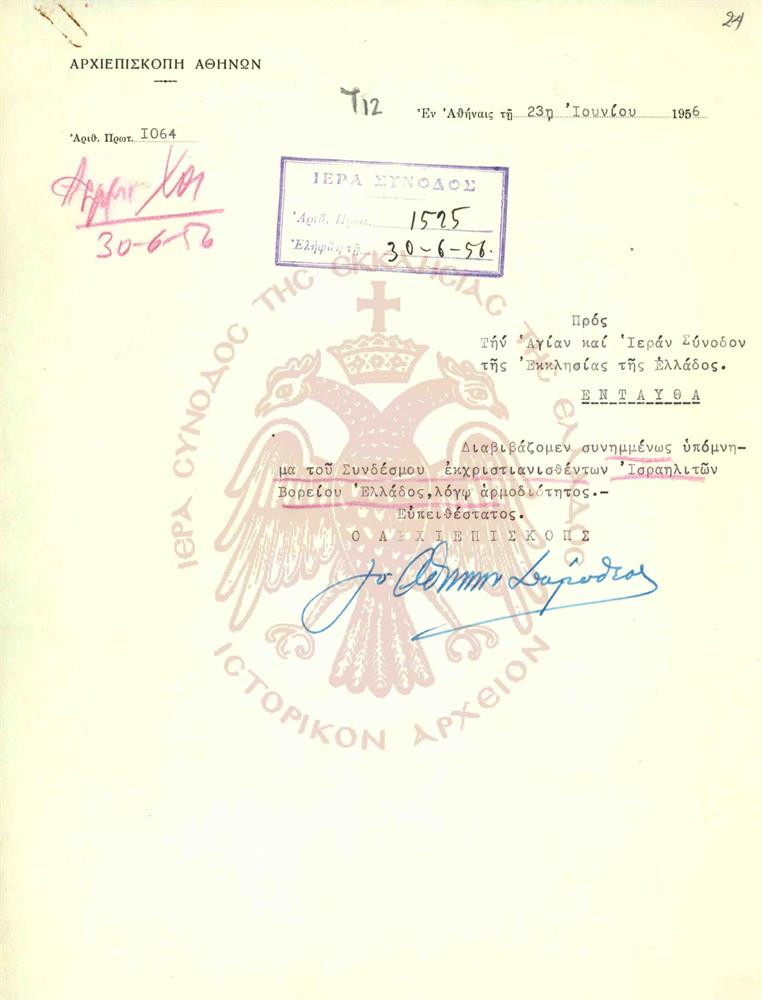 24
ΑΡΧΙΕΠΙΣΚΟΠΗ ΑΘΗΝΩΝ
Τ12
Ἐν Ἀθήναις τῇ 23η Ἰουνίου 1956
Ἀριθ. Πρωτ. Ι064
30-6-56
ΙΕΡΑ ΣΥΝΟΔΟΣ
Ἀριθ. Πρωτ. 1525
Ἐλήφθη τῇ 30-6-56.
Πρός
Τήν Ἁγίαν καί Ἱεράν Σύνοδον
τῆς Ἐκκλησίας τῆς Ἑλλάδος.
ΕΝΤΑΥΘΑ
Διαβιβάζομεν συνημμένως ὑπόμνη-
μα τοῦ Συνδέσμου ἐκχριστιανισθέντων Ἰσραηλιτῶν
Βορείου Ἑλλάδος, λόγῳ ἁρμοδιότητος.-
Εὐπειθέστατος.
Ο ΑΡΧΙΕΠΙΣΚΟΠΣ
† ὁ Ἀθηνῶν Δωρόθεος
ΙΕΡΑ ΣΥΝΟΔΟΣ ΤΗΣ ΕΚΚΛΗΣΙΑΣ ΤΗΣ ΕΛΛΑΔΟΣ
ΙΣΤΟΡΙΚΟΝ ΑΡΧΕΙΟΝ